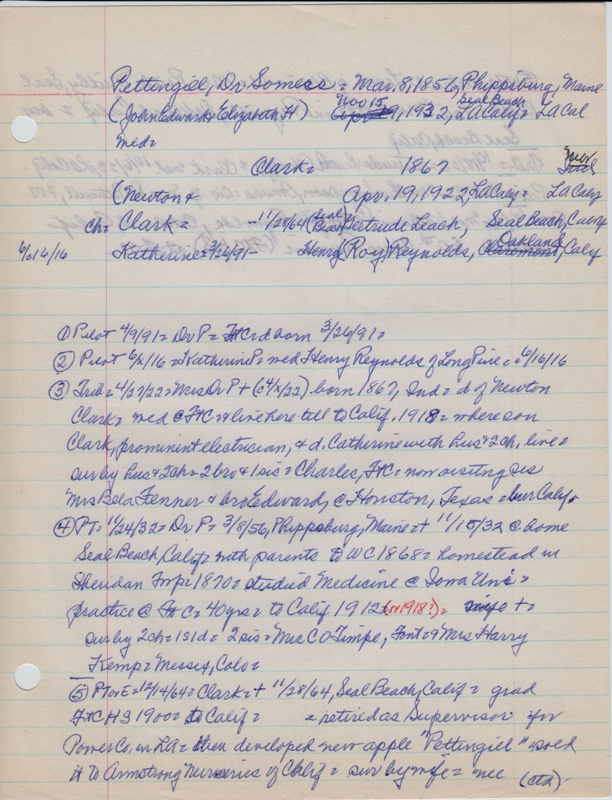 Pettingill, Dr Somers = Mar, 8, 1856, Phippsburg, Maine
(John Edward & Elizabeth H) Nov 15, 1932, Seal Beach LaCalif = LaCal
med =
Clark = 1867
(Newton & Apr, 19, 1922, LaCaly = LaCaly
ch = Clark = - 11/28/64 (Seal Beach) Gertrude Leach, Seal Beach, Calif
6/16/16 Katherine = 3/26/91 - Henry (Roy) Reynolds, Oakland Claremont, Calif
① Pilot 4/9/91 = Dr P = FtC = d born 3/26/91 =
② Pilot 6/ /16 = Katherine P = med Henry Reynolds of Long Pine = 6/16/16
③ Trib = 4/27/22 = Mrs Dr P + (c 4/ /22) born 1867, Ind = d of Newton
Clark = med @ FtC = & live here till to Calif. 1918 = where son
Clark, prominent electrician, & d. Catherine with hus & 2ch, live =
sur by hus & 2ch = 2 bro & 1 sis = Charles, FtC = now visiting sis
Mrs Bela Fenner & bro Edward, @ Houston, Texas = bur Calif.
④ PT = 11/24/32 = Dr P = 3/8/56, Phippsburg, Maine = + 11/15/32 @ home
Seal Beach, Calif = with parents to WC 1868 = homestead in
Sheridan Twp 1870 = studied Medicine @ Iowa Uni =
practice @ FtC = 40 yrs = to Calif 1912 = (or 1918?) = wife + =
sur by 2ch = 1s 1d = 2 sis = Mrs CO Timpe, Font = & Mrs Harry
Kemp = Messex, Colo =
⑤ PT & E = 12/14/64 = Clark = + 11/28/64, Seal Beach, Calif = grad
FtC HS 1900 = to Calif = = retired as Supervisor for
Power Co, in LA = then developed new apple "Pettingill" & sold
it to Armstrong Nurseries of Calif = sur by wife = nee (ctd)